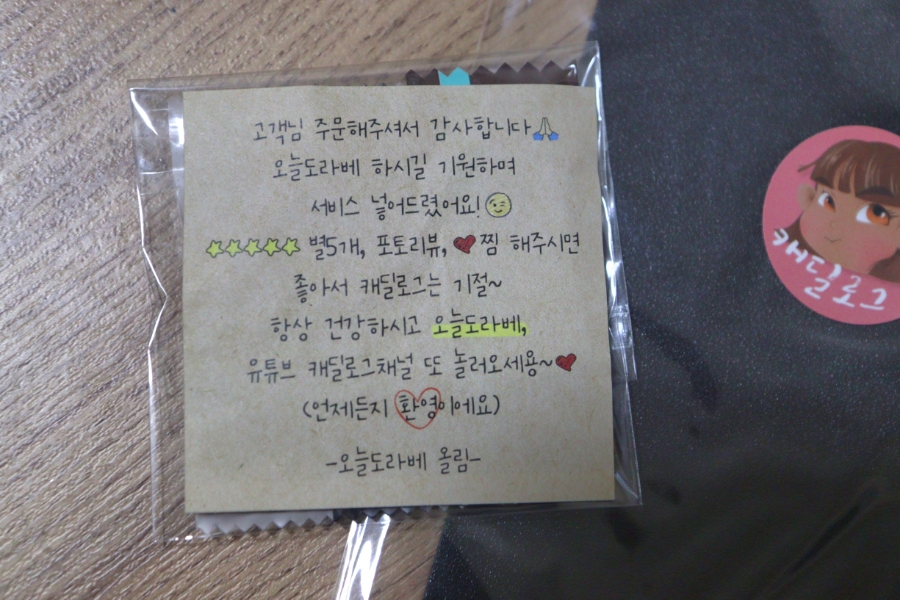 고객님 주문해주셔서 감사합니다🙏
오늘도라베 하시길 기원하며
서비스 넣어드렸어요!😉
★★★★★ 별5개, 포토리뷰, ♥찜 해주시면
좋아서 캐딜로그는 기절~
항상 건강하시고 오늘도라베,
유튜브 캐딜로그채널 또 놀러오세용~♥
(언제든지 환영이에요)
-오늘도라베 올림-
캐딜로그